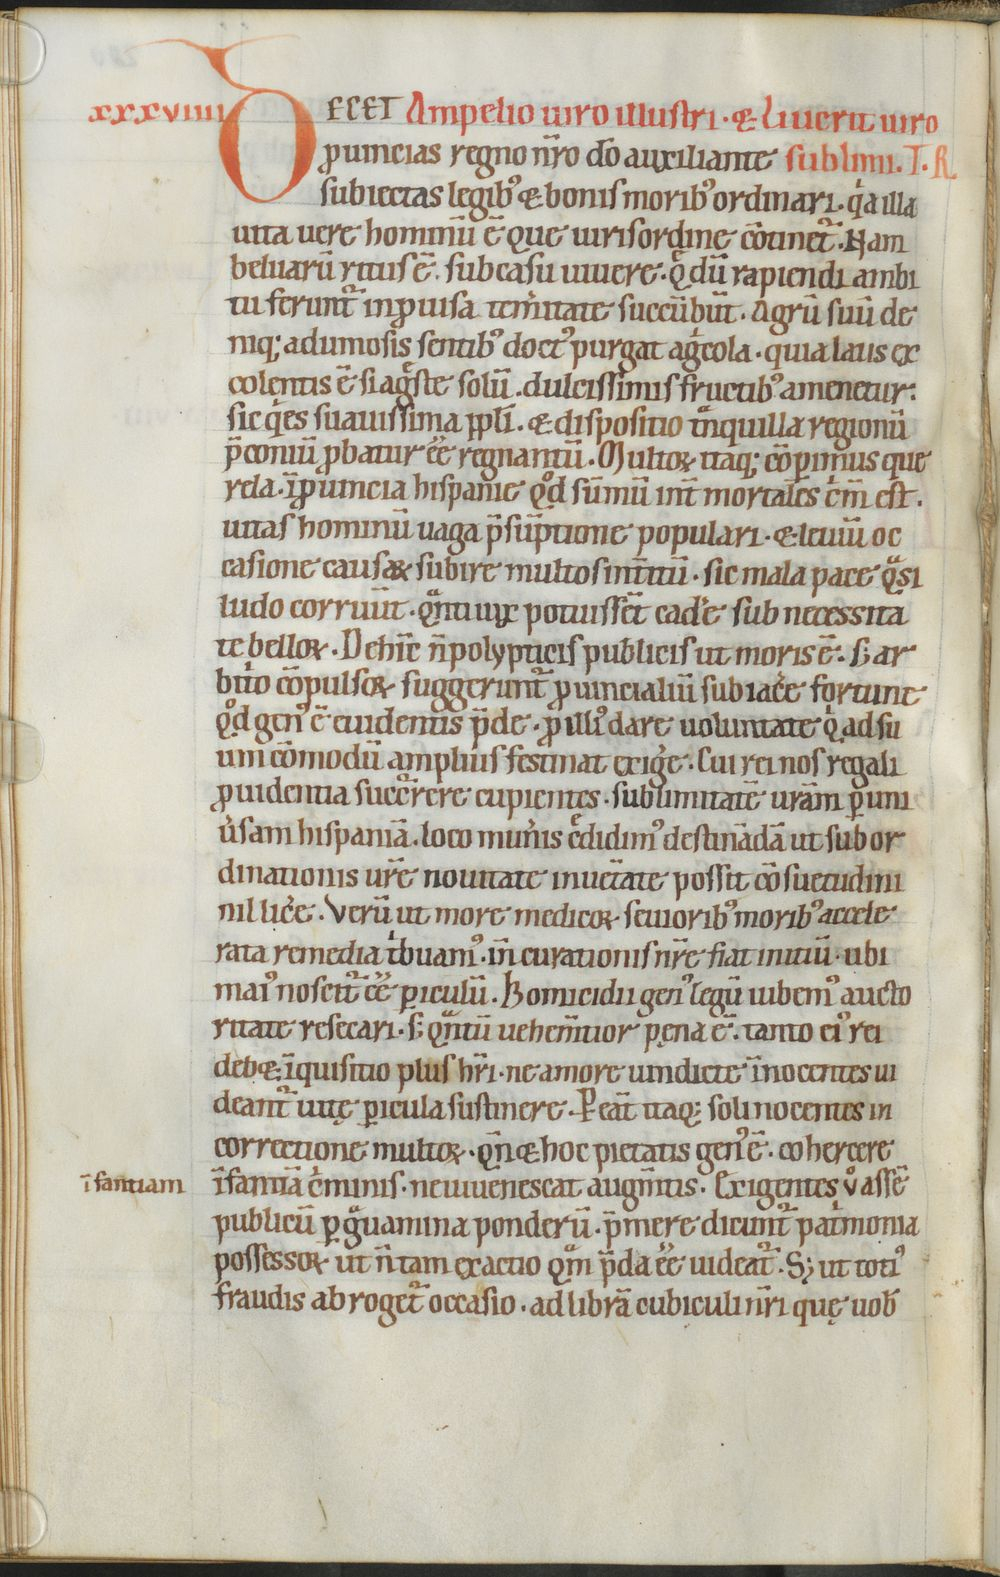 xxxviiii DECET Ampelio uiro illustri · & Liuerit uiro
ꝓuincias regno nr̄o dō auxiliante sublimi. T. R
subiectas legibꝰ & bonis moribꝰ ordinari · qͥa illa
uita uere hominū ē que iuris ordine cōtinet᷑ · Nam
beluarū ritus ē · sub casu uiuere · qͥ dū rapiendi ambi
tu ferunt᷑ inꝓuisa tem̄itate succūbūt · Agrū suū de
niq; a dumosis sentibꝰ doctꝰ purgat agͥcola · quia laus ex
colentis ē si agͤste solū · dulcissimis fructibꝰ amenetur ·
sic qͥes suauissima ppl̄i · & dispositio tͣnquilla regionū
p̄coniū ꝓbatur eē regnantiū · Multoꝝ itaq; cōperimus que
rela · ī ꝓuincia hispanie qͦd sūmū int̄ mortales cͥm̄ est ·
uitas hominū uaga p̄sūptione populari · & leuiū oc
casione causaꝝ subire multos int̄itū · sic mala pace qͣsi
ludo corruūt · qͣnti uix potuissēt cadͤe sub necessita
te belloꝝ · Dehīc n̄ polypticis publicis ut moris ē · s; ar
bitͥo cōpulsoꝝ suggerunt᷑ ꝓuincialiū subiacͤe fortune
qͦd genꝰ ē euidentis p̄de · ꝓ illiꝰ dare uoluntate qͥ ad su
um cōmodū amplius festinat exigͤe · Cui rei nos regali
ꝓuidentia succͬrere cupientes · sublimitatē uram̄ ꝑ uni
ūsam hispaniā · loco mun̄is cͤdidimꝰ destinādā ut sub or
dinationis ur̄e nouitate inuet̄ate possit cōsuetudini
nil licͤe · Verū ut more medicoꝝ seuioribꝰ moribꝰ accele
rata remedia tͥbuamꝰ · in̄ curationis nr̄e fiat initiū · ubi
maiꝰ noscit᷑ eē ꝑiculū · Homicidii genꝰ legū iubemꝰ aucto
ritate resecari · s; qͣntū uehem̄tior pena ē · tanto eiꝰ rei
deb& īquisitio plus hr̄i · ne amore uindicte īnocentes ui
deant᷑ uitę ꝑicula sustinere · Peāt itaq; soli nocentes in
correctione multoꝝ · qn̄ & hoc pietatis genꝰ ē · cohercere
īfantiam īfantiā cͥminis · ne iuuenescat augm̄tis · Exigentes uͦ assē
publicū ꝑ gͣuamina ponderū · p̄mere dicunt᷑ patͥmonia
possessoꝝ ut n̄ tam exactio qͣm p̄da eē uideat᷑ · S; ut totiꝰ
fraudis abroget᷑ occasio · ad librā cubiculi nr̄i quę uob̄